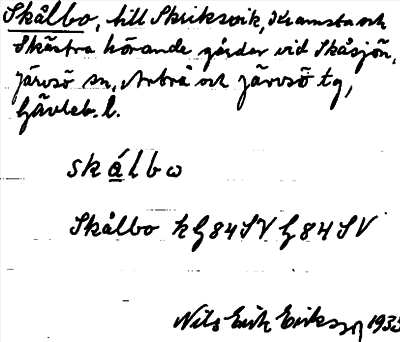 Skålbo, till Skriksvik, Kramsta och
Skästra hörande gårdar vid Skåsjön,
Järvsö sn, Arbrå och Järvsö tg,
Gävleb. l.
skálbω
Skålbo k G84SV G84SV
Nils Erik Eriksson 1935